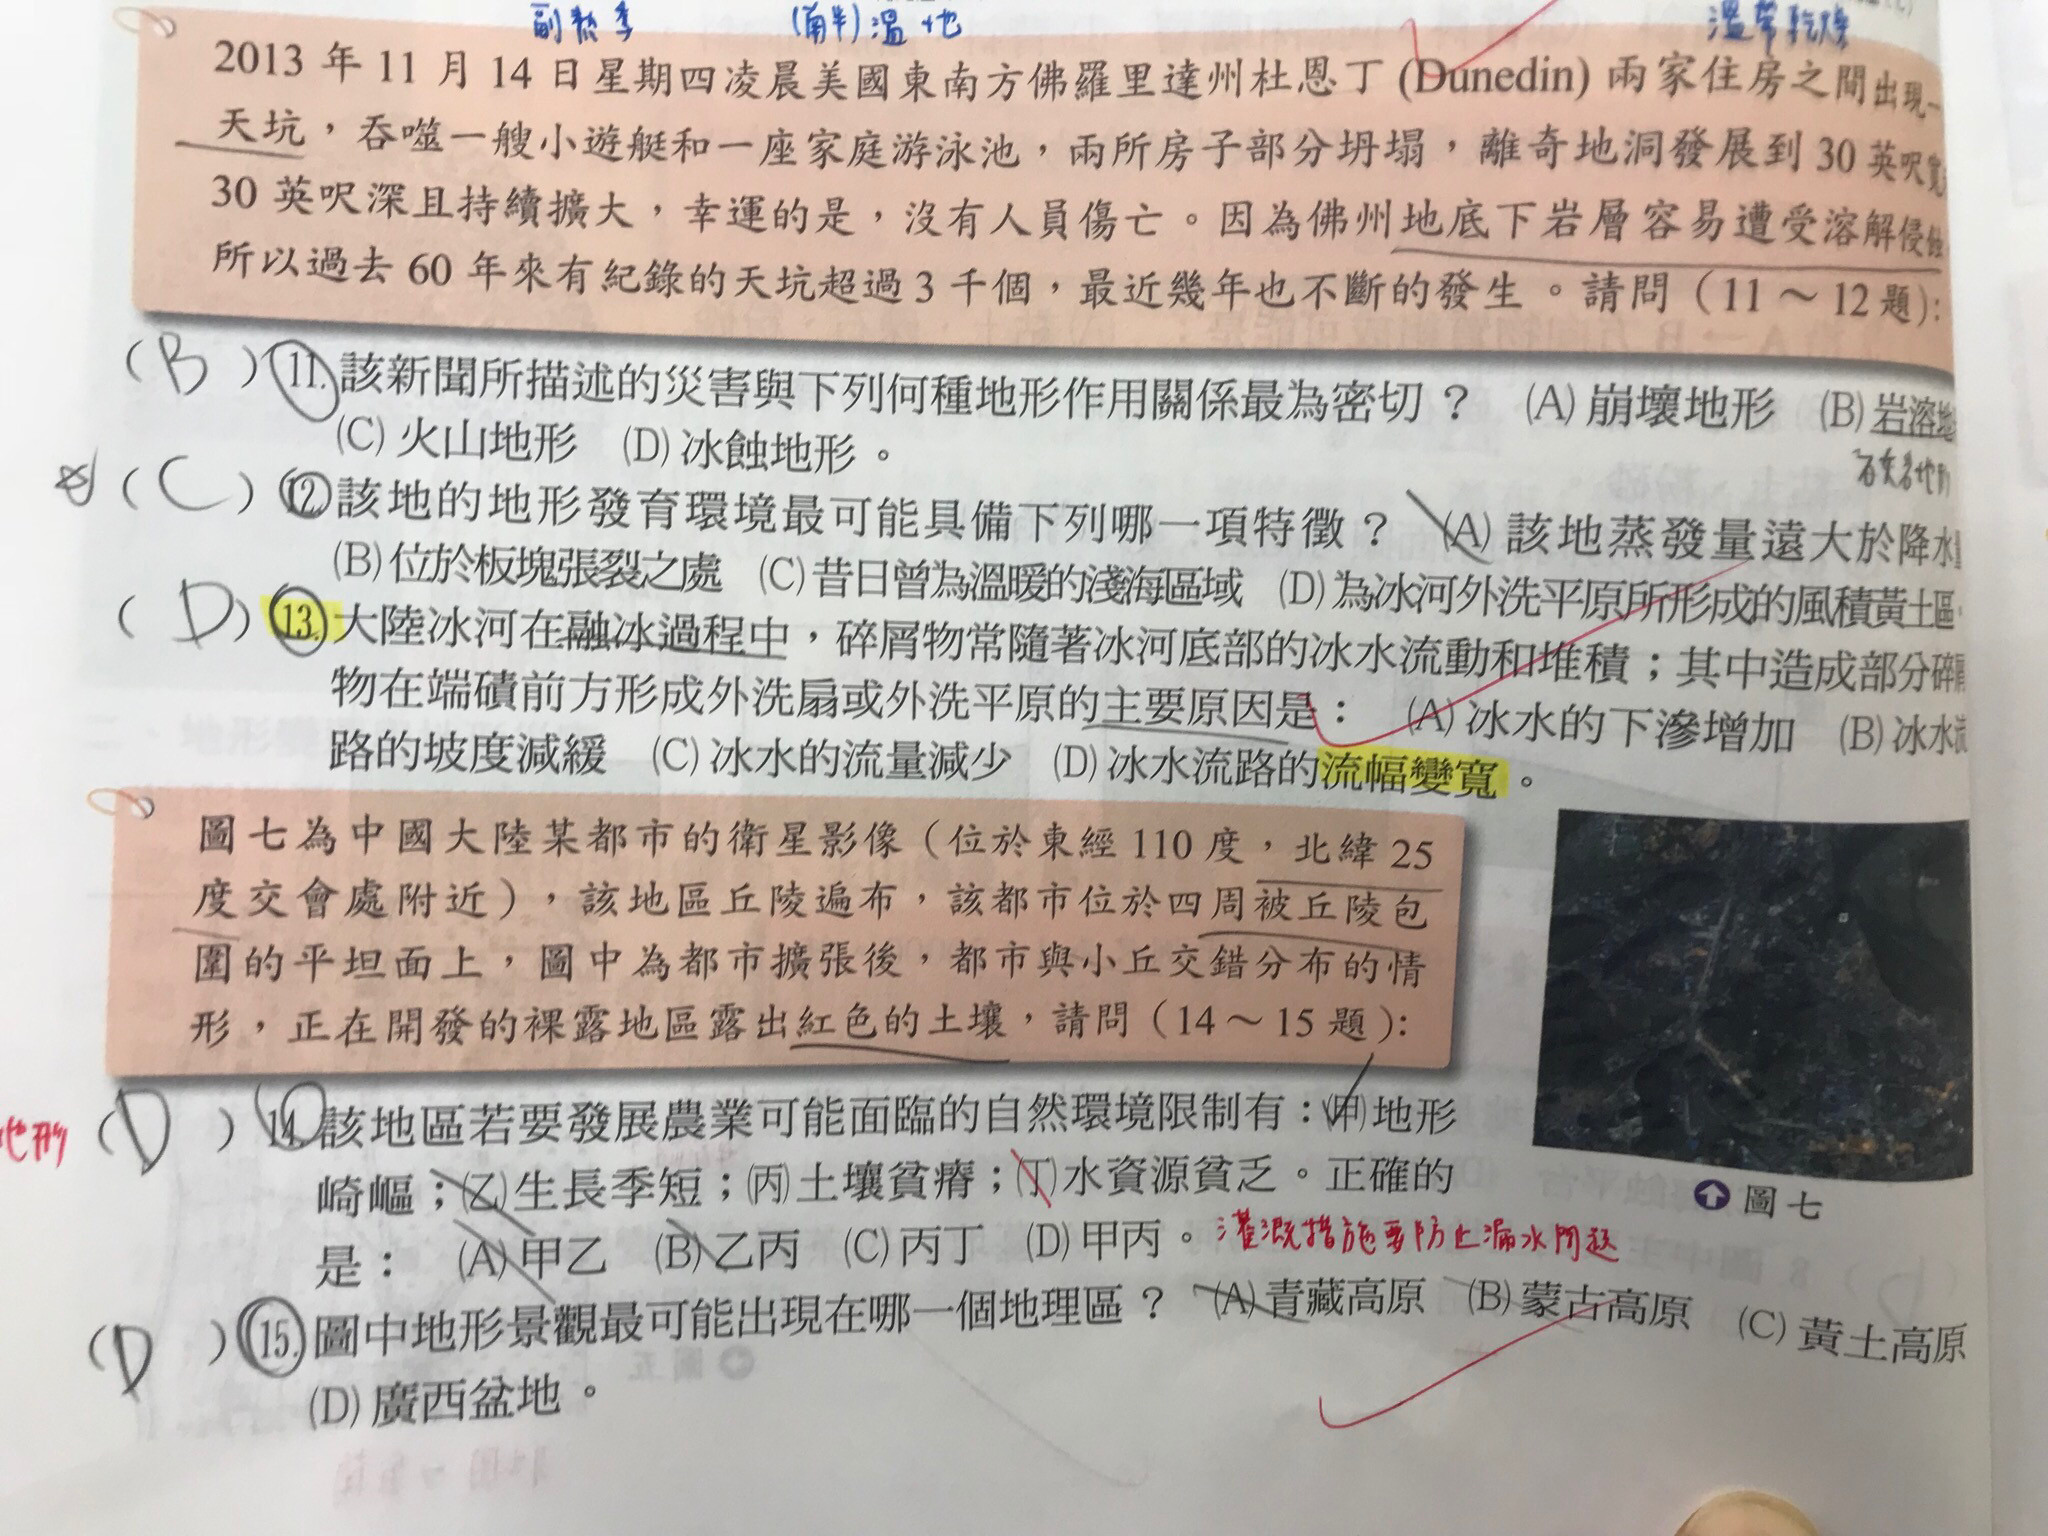 副熱季 (南半)溫地 溫帶乾燥
2013 年 11 月 14 日星期四凌晨美國東南方佛羅里達州杜恩丁 (Dunedin) 兩家住房之間出現一
天坑，吞噬一艘小遊艇和一座家庭游泳池，兩所房子部分坍塌，離奇地洞發展到 30 英呎寬
30 英呎深且持續擴大，幸運的是，沒有人員傷亡。因為佛州地底下岩層容易遭受溶解侵蝕
所以過去 60 年來有紀錄的天坑超過 3 千個，最近幾年也不斷的發生。請問（11～12 題）:
( B ) 11. 該新聞所描述的災害與下列何種地形作用關係最為密切？ (A) 崩壞地形 (B) 岩溶地
(C) 火山地形 (D) 冰蝕地形。
( C ) 12. 該地的地形發育環境最可能具備下列哪一項特徵？ (A) 該地蒸發量遠大於降水量
(B) 位於板塊張裂之處 (C) 昔日曾為溫暖的淺海區域 (D) 為冰河外洗平原所形成的風積黃土區。
( D ) 13. 大陸冰河在融冰過程中，碎屑物常隨著冰河底部的冰水流動和堆積；其中造成部分碎屑
物在端磧前方形成外洗扇或外洗平原的主要原因是： (A) 冰水的下滲增加 (B) 冰水流
路的坡度減緩 (C) 冰水的流量減少 (D) 冰水流路的流幅變寬。
圖七為中國大陸某都市的衛星影像（位於東經 110 度，北緯 25
度交會處附近），該地區丘陵遍布，該都市位於四周被丘陵包
圍的平坦面上，圖中為都市擴張後，都市與小丘交錯分布的情
形，正在開發的裸露地區露出紅色的土壤，請問（14～15 題）:
圖七
地形
( D ) 14. 該地區若要發展農業可能面臨的自然環境限制有：(甲)地形
崎嶇；(乙)生長季短；(丙)土壤貧瘠；(丁)水資源貧乏。正確的
是： (A) 甲乙 (B) 乙丙 (C) 丙丁 (D) 甲丙。 灌溉措施要防止漏水問題
( D ) 15. 圖中地形景觀最可能出現在哪一個地理區？ (A) 青藏高原 (B) 蒙古高原 (C) 黃土高原
(D) 廣西盆地。